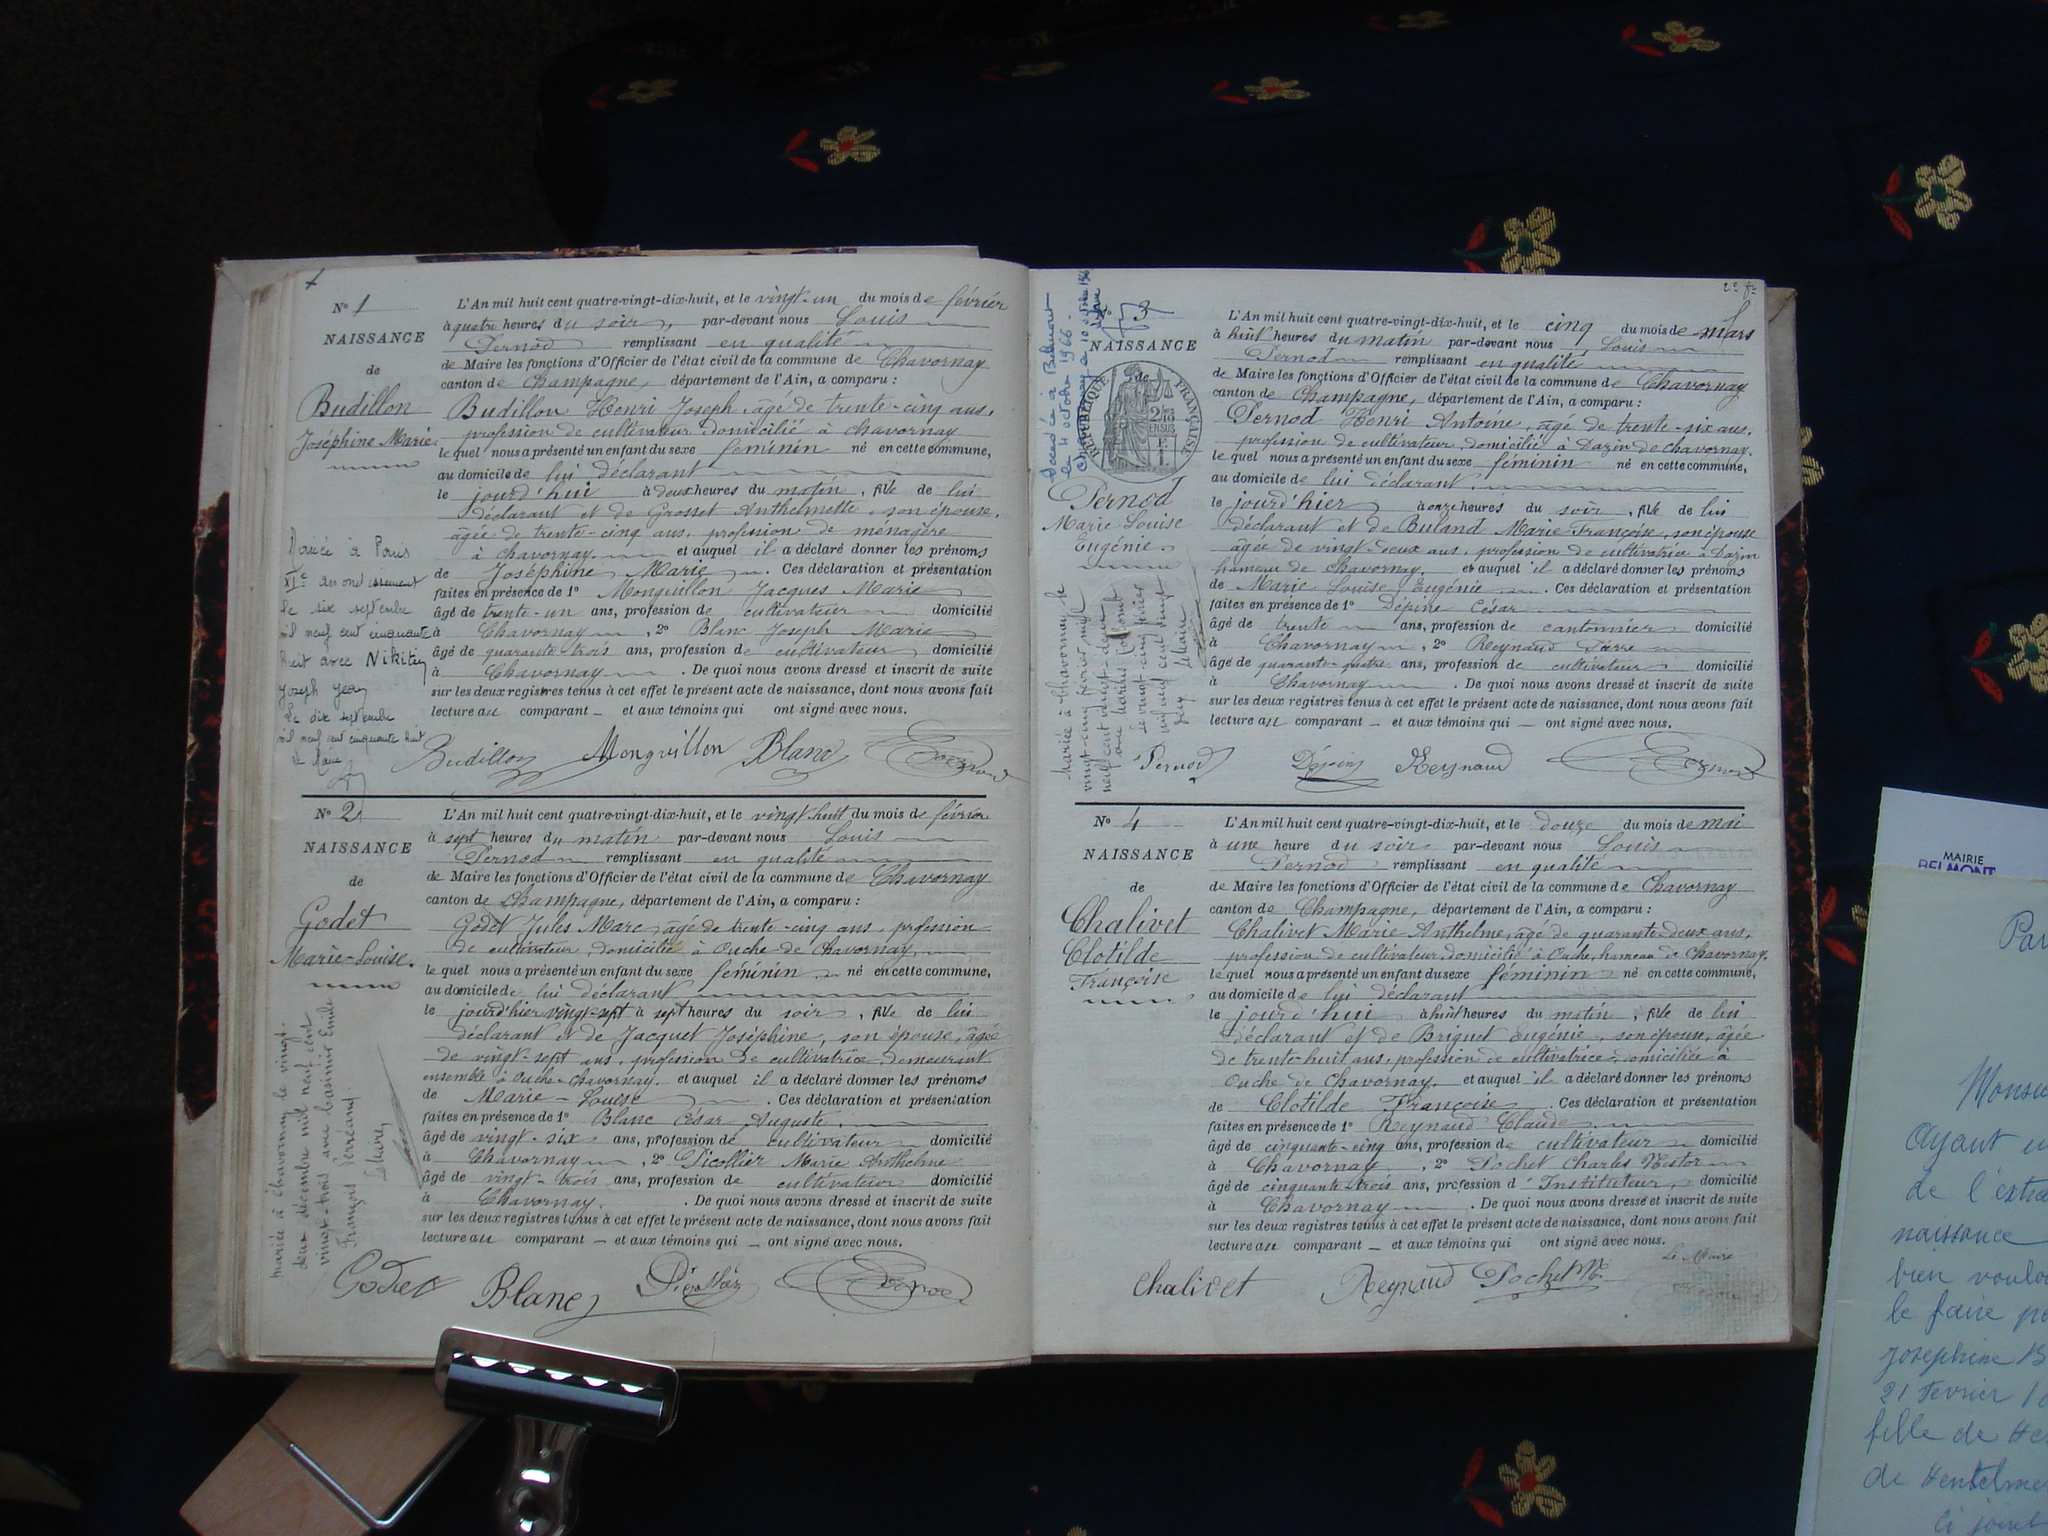 N° 1
NAISSANCE
de
Budillon
Joséphine Marie
L'An mil huit cent quatre-vingt-dix-huit, et le vingt-un du mois de février
à quatre heures du soir, par-devant nous Louis
Pernod remplissant en qualité
de Maire les fonctions d'Officier de l'état civil de la commune de Chavornay
canton de Champagne, département de l'Ain, a comparu :
Budillon Henri Joseph, âgé de trente-cinq ans,
profession de cultivateur domicilié à Chavornay
lequel nous a présenté un enfant du sexe féminin né en cette commune,
au domicile de lui déclarant
le jourd'hui à deux heures du matin, fille de lui
déclarant et de Grosset Anthelmette, son épouse,
âgée de trente-cinq ans, profession de ménagère
à Chavornay. et auquel il a déclaré donner les prénoms
de Joséphine Marie. Ces déclaration et présentation
faites en présence de 1° Monguillon Jacques Marie
âgé de trente-un ans, profession de cultivateur domicilié
à Chavornay, 2° Blanc Joseph Marie
âgé de quarante trois ans, profession de cultivateur domicilié
à Chavornay. De quoi nous avons dressé et inscrit de suite
sur les deux registres tenus à cet effet le présent acte de naissance, dont nous avons fait
lecture au comparant et aux témoins qui ont signé avec nous.
Mariée à Paris
XIe arrondissement
le six septembre
mil neuf cent cinquante
huit avec Nikitin
Joseph Jean
Le dix septembre
mil neuf cent cinquante huit
Le Maire
Budillon Monguillon Blanc Pernod
N° 2
NAISSANCE
de
Godet
Marie-Louise.
L'An mil huit cent quatre-vingt-dix-huit, et le vingt-huit du mois de février
à sept heures du matin par-devant nous Louis
Pernod remplissant en qualité
de Maire les fonctions d'Officier de l'état civil de la commune de Chavornay
canton de Champagne, département de l'Ain, a comparu :
Godet Jules Marc, âgé de trente-cinq ans, profession
de cultivateur, domicilié à Ouche de Chavornay,
lequel nous a présenté un enfant du sexe féminin né en cette commune,
au domicile de lui déclarant
le jourd'hier vingt-sept à sept heures du soir, fille de lui
déclarant et de Jacquet Joséphine, son épouse, âgée
de vingt-sept ans, profession de cultivatrice demeurant
ensemble à Ouche-Chavornay. et auquel il a déclaré donner les prénoms
de Marie-Louise. Ces déclaration et présentation
faites en présence de 1° Blanc César Auguste.
âgé de vingt-six ans, profession de cultivateur domicilié
à Chavornay, 2° Picollier Marie Anthelme
âgé de vingt-trois ans, profession de cultivateur domicilié
à Chavornay. De quoi nous avons dressé et inscrit de suite
sur les deux registres tenus à cet effet le présent acte de naissance, dont nous avons fait
lecture au comparant et aux témoins qui ont signé avec nous.
mariée à Chavornay le vingt-
deux décembre mil neuf cent
vingt-trois avec Emile
François
Le Maire,
Godet Blanc Picollier Pernod
N° 3
NAISSANCE
de
RÉPUBLIQUE FRANÇAISE
Décédée à Belmont
le 4 octobre 1966
Pernod
Marie Louise
Eugénie
L'An mil huit cent quatre-vingt-dix-huit, et le cinq du mois de mars
à huit heures du matin par-devant nous Louis
Pernod remplissant en qualité
de Maire les fonctions d'Officier de l'état civil de la commune de Chavornay
canton de Champagne, département de l'Ain, a comparu :
Pernod Henri Antoine, âgé de trente-six ans,
profession de cultivateur, domicilié à Dazin de Chavornay.
lequel nous a présenté un enfant du sexe féminin né en cette commune,
au domicile de lui déclarant.
le jourd'hier à onze heures du soir, fille de lui
déclarant et de Buland Marie Françoise, son épouse
âgée de vingt-deux ans, profession de cultivatrice à Dazin
hameau de Chavornay. et auquel il a déclaré donner les prénoms
de Marie Louise Eugénie. Ces déclaration et présentation
faites en présence de 1° Dépine César
âgé de trente ans, profession de cantonnier domicilié
à Chavornay, 2° Reynaud Pierre
âgé de quarante-quatre ans, profession de cultivateur domicilié
à Chavornay. De quoi nous avons dressé et inscrit de suite
sur les deux registres tenus à cet effet le présent acte de naissance, dont nous avons fait
lecture au comparant et aux témoins qui ont signé avec nous.
Mariée à Chavornay le
vingt-cinq février mil
neuf cent vingt-deux
le vingt-cinq février
mil neuf cent vingt
deux
Le Maire
Pernod Dépine Reynaud Pernod
N° 4
NAISSANCE
de
Chalivet
Clotilde
Françoise
L'An mil huit cent quatre-vingt-dix-huit, et le douze du mois de mai
à une heure du soir par-devant nous Louis
Pernod remplissant en qualité
de Maire les fonctions d'Officier de l'état civil de la commune de Chavornay
canton de Champagne, département de l'Ain, a comparu :
Chalivet Marie Anthelme, âgé de quarante-deux ans,
profession de cultivateur, domicilié à Ouche, hameau de Chavornay,
lequel nous a présenté un enfant du sexe féminin né en cette commune,
au domicile de lui déclarant
le jourd'hui à huit heures du matin, fille de lui
déclarant et de Briguet Eugénie, son épouse, âgée
de trente-huit ans, profession de cultivatrice domiciliée à
Ouche de Chavornay. et auquel il a déclaré donner les prénoms
de Clotilde Françoise. Ces déclaration et présentation
faites en présence de 1° Reynaud Claude.
âgé de cinquante-cinq ans, profession de cultivateur domicilié
à Chavornay, 2° Pochet Charles Nestor
âgé de cinquante-trois ans, profession d'Instituteur, domicilié
à Chavornay. De quoi nous avons dressé et inscrit de suite
sur les deux registres tenus à cet effet le présent acte de naissance, dont nous avons fait
lecture au comparant et aux témoins qui ont signé avec nous.
Le Maire
Chalivet Reynaud Pochet N.
MAIRIE
BELMONT
Par
Monsie
Ayant
de l'extra
naissance
bien voulo
le faire
Joséphine B
21 Fevrier
fille de He
de
Ci joint